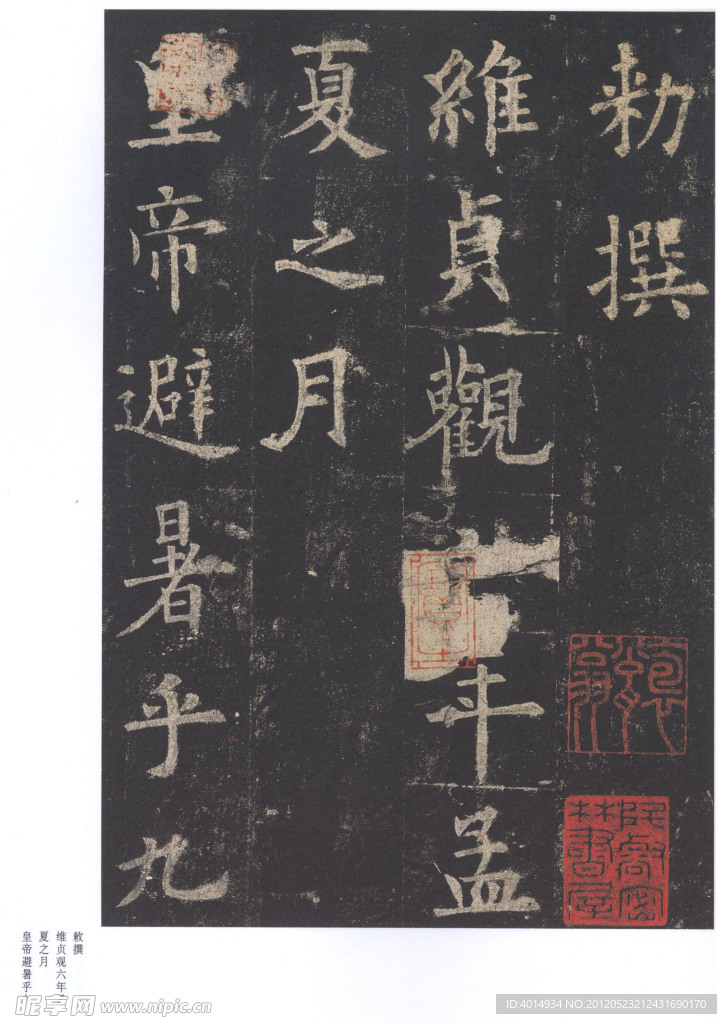 敕撰
維貞觀六年孟
夏之月
皇帝避暑乎九
敕撰
维贞观六年
夏之月
皇帝避暑乎
昵享网 www.nipic.cn
ID:4014934 NO:20120523212431690170